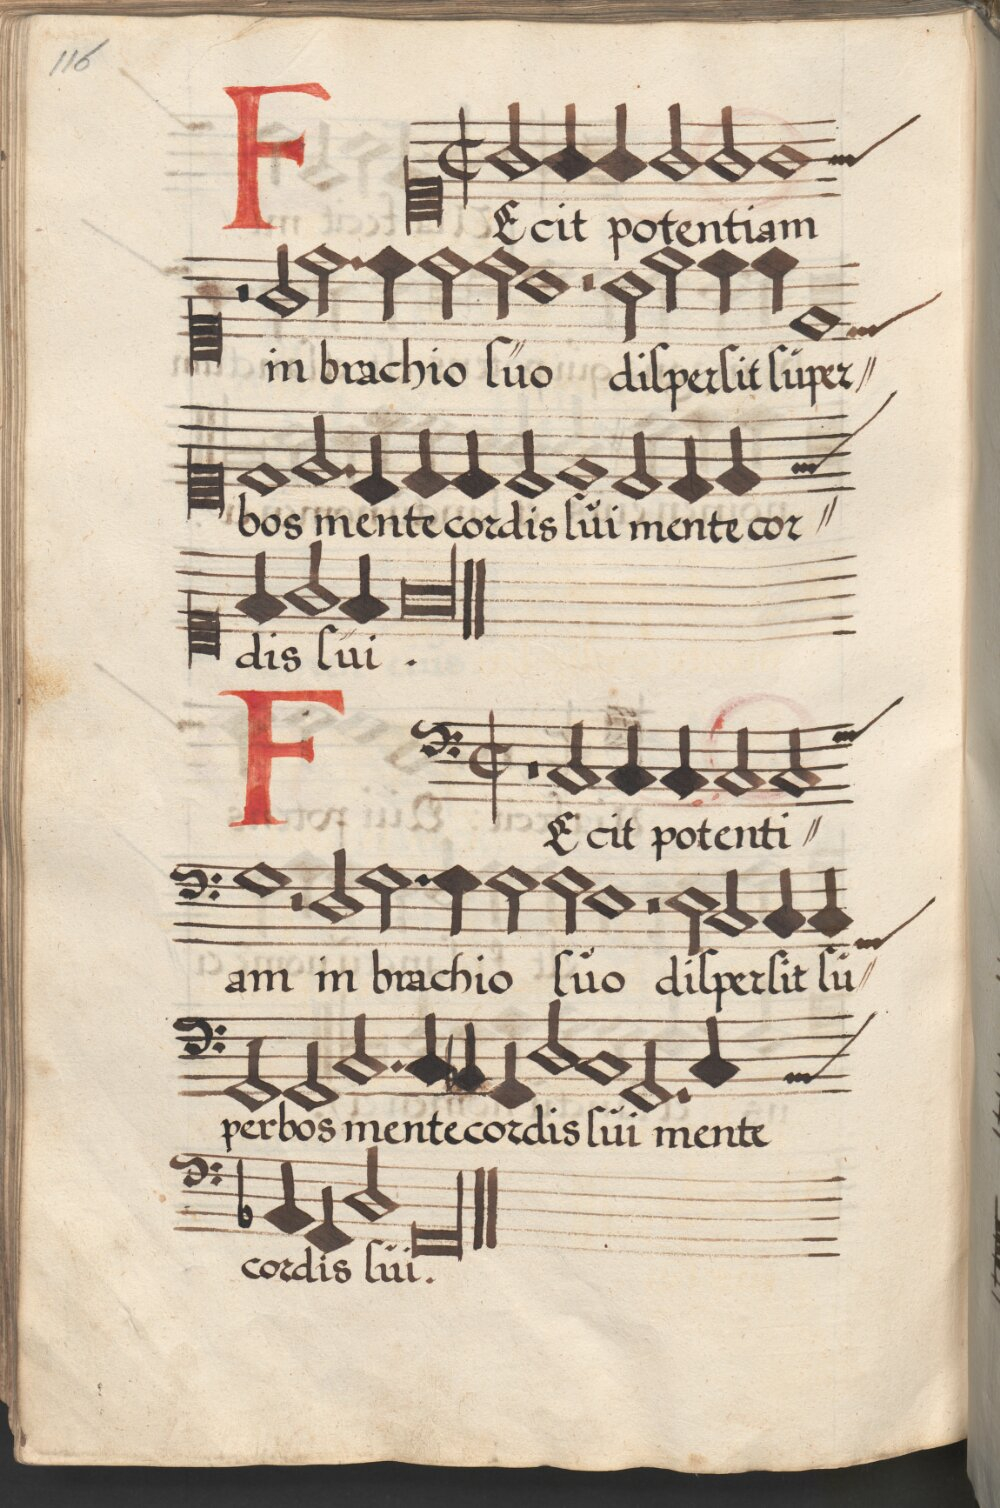 116
FEcit potentiam
in brachio suo dispersit super//
bos mente cordis sui mente cor//
dis sui.
FEcit potenti//
am in brachio suo dispersit su//
perbos mente cordis sui mente
cordis sui.